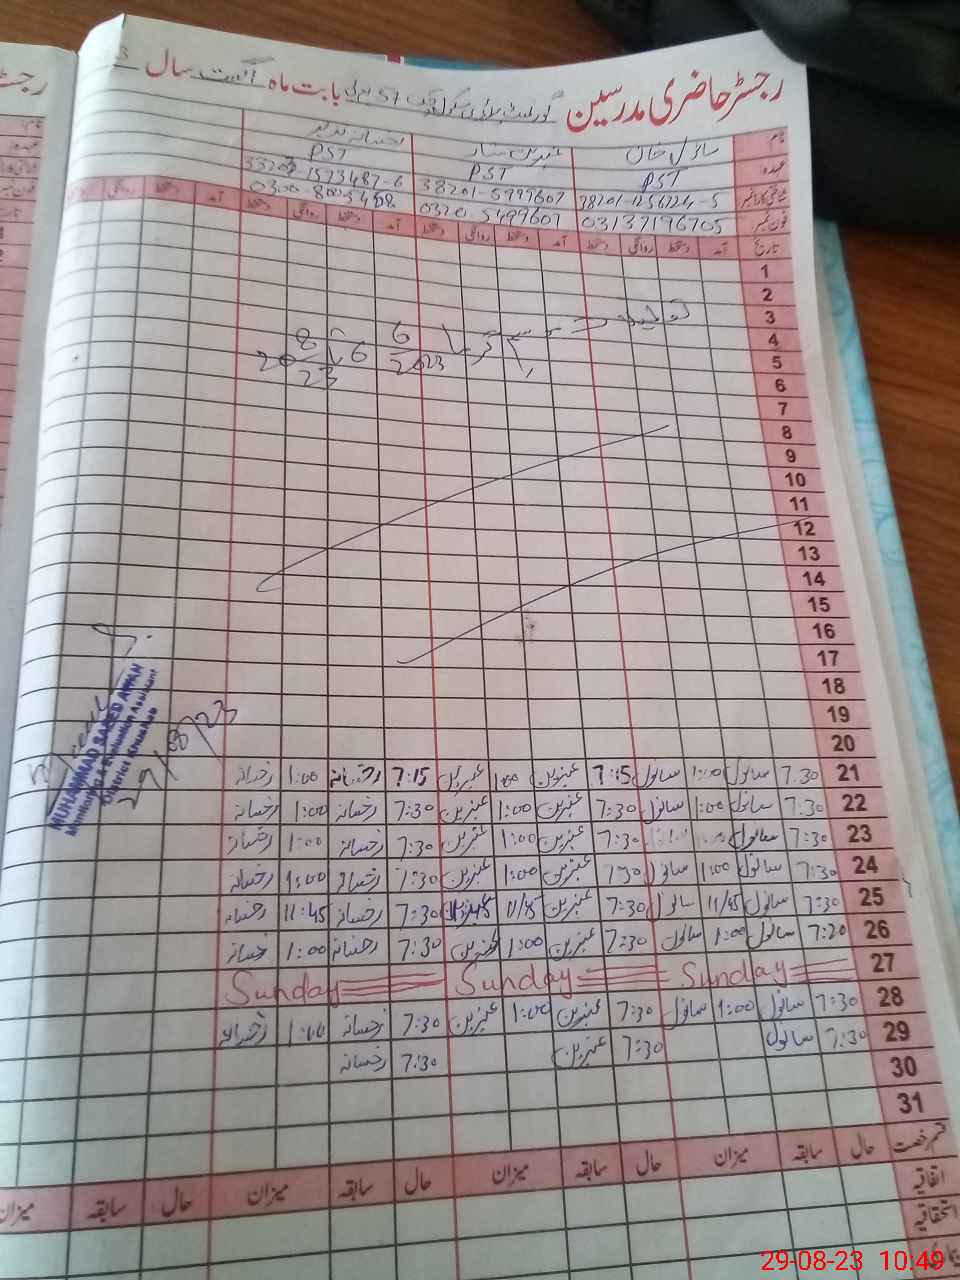 رجسٹر حاضری مدرسین گورنمنٹ پرائمری سکول چک 57 بابت ماہ اگست سال
نام
عہدہ PST PST PST
شناختی کارڈ نمبر 38201-1256724-5 38201-5999607 1573487-6
فون نمبر 03137196705 5499607
تاریخ آمد دستخط روانگی دستخط آمد دستخط روانگی دستخط آمد دستخط روانگی دستخط آمد دستخط روانگی
1
2
3
4
5
6
7
8
9
10
11
12
13
14
15
16
17
18
19
20
21 7:30 سانول 1:00 سانول 7:15 عنبرین 1:00 عنبرین 7:15 رخسانہ 1:00 رخسانہ
22 7:30 سانول 1:00 سانول 7:30 عنبرین 1:00 عنبرین 7:30 رخسانہ 1:00 رخسانہ
23 7:30 سانول 7:30 عنبرین 1:00 عنبرین 7:30 رخسانہ 1:00 رخسانہ
24 7:30 سانول 1:00 سانول 7:30 عنبرین 1:00 عنبرین 7:30 رخسانہ 1:00 رخسانہ
25 7:30 سانول 11/45 سانول 7:30 عنبرین 11/45 7:30 رخسانہ 11:45 رخسانہ
26 7:20 سانول 1:00 سانول 7:30 عنبرین 1:00 عنبرین 7:30 رخسانہ 1:00 رخسانہ
27 Sunday Sunday Sunday
28 7:30 سانول 1:00 سانول 7:30 عنبرین 1:00 عنبرین 7:30 رخسانہ 1:00 رخسانہ
29 7:30 سانول 7:30 عنبرین 7:30 رخسانہ
30
31
قسم رخصت حال سابقہ میزان حال سابقہ میزان حال سابقہ میزان حال سابقہ میزان
اتفاقیہ
استحقاقیہ
MUHAMMAD SAEED AWAN
Monitoring & Evaluation Assistant
District Khushab
29/08/23
29-08-23 10:49